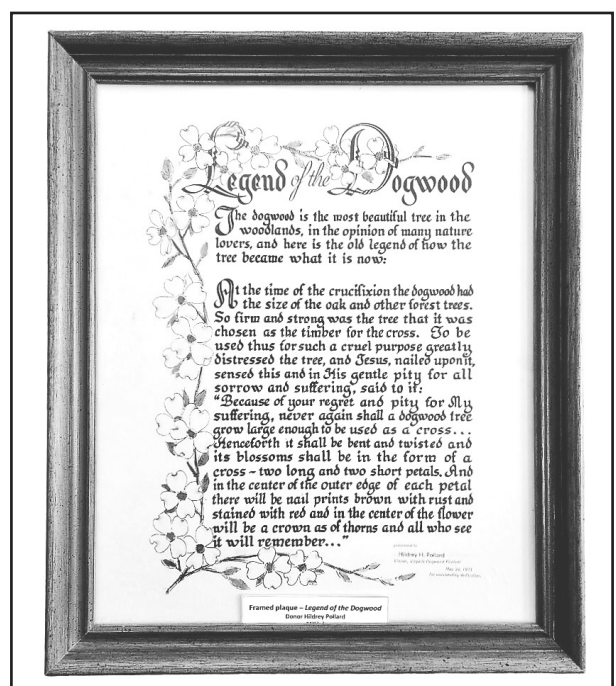 Legend of the Dogwood
The dogwood is the most beautiful tree in the
woodlands, in the opinion of many nature
lovers, and here is the old legend of how the
tree became what it is now:
At the time of the crucifixion the dogwood had
the size of the oak and other forest trees.
So firm and strong was the tree that it was
chosen as the timber for the cross. To be
used thus for such a cruel purpose greatly
distressed the tree, and Jesus, nailed upon it,
sensed this and in His gentle pity for all
sorrow and suffering, said to it:
"Because of your regret and pity for My
suffering, never again shall a dogwood tree
grow large enough to be used as a cross...
Henceforth it shall be bent and twisted and
its blossoms shall be in the form of a
cross - two long and two short petals. And
in the center of the outer edge of each petal
there will be nail prints brown with rust and
stained with red and in the center of the flower
will be a crown as of thorns and all who see
it will remember..."
Hildrey H. Pollard
Framed plaque – Legend of the Dogwood
Donor Hildrey Pollard